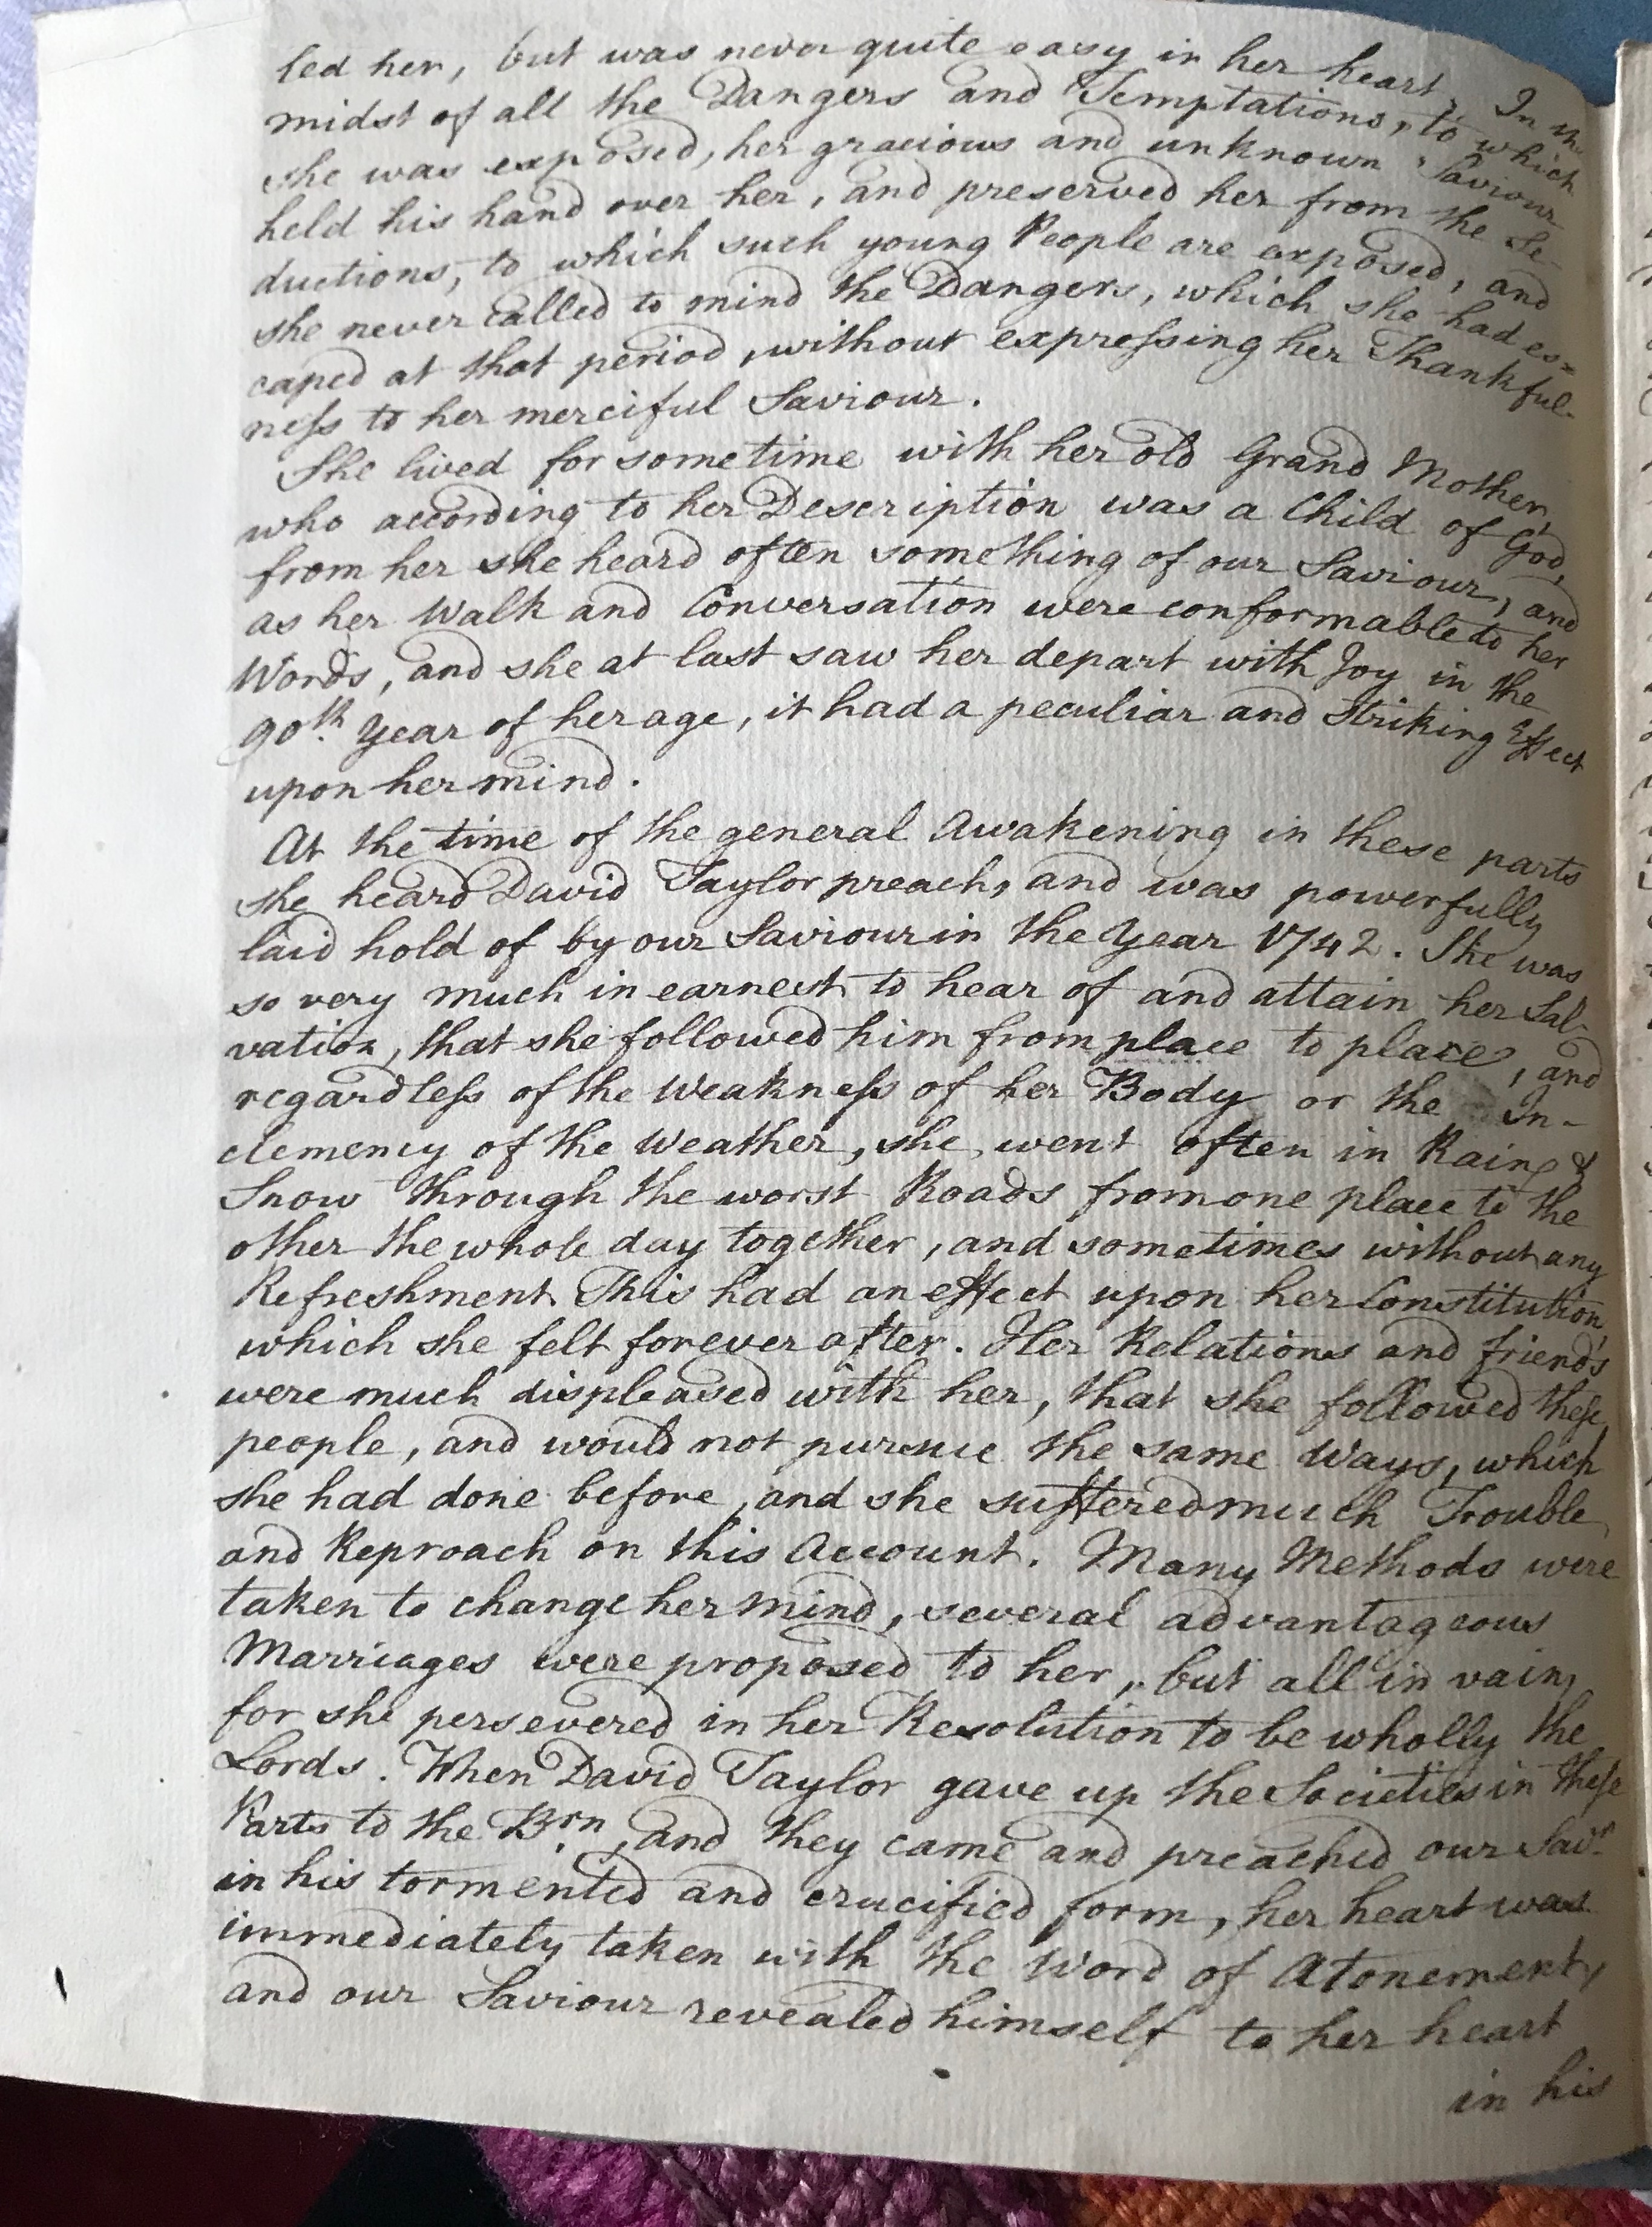 led her, but was never quite easy in her heart. In the
midst of all the Dangers and Temptations, to which
she was exposed, her gracious and unknown Saviour
held his hand over her, and preserved her from the Se-
ductions, to which such young People are exposed, and
she never called to mind the Dangers, which she had es=
caped at that period, without expreſsing her Thankful-
neſs to her merciful Saviour.
She lived for sometime with her old Grand Mother,
who according to her Description was a Child of God,
from her she heard often something of our Saviour, and
as her Walk and Conversation were conformable to her
Words, and she at last saw her depart with Joy in the
90th Year of her age, it had a peculiar and Striking Effect
upon her mind.
At the time of the general Awakening in these parts
she heard David Taylor preach, and was powerfully
laid hold of by our Saviour in the Year 1742. She was
so very much in earnest to hear of and attain her Sal-
vation, that she followed him from place to place, and
regardleſs of the Weakneſs of her Body or the In-
clemency of the Weather, she went often in Rain &
Snow through the worst Roads from one place to the
other the whole day together, and sometimes without any
Refreshment. This had an effect upon her Constitution,
which she felt forever after. Her Relations and friends
were much displeased with her, that she followed theſe
people, and would not pursue the same Ways, which
she had done before, and she suffered much Trouble
and Reproach on this Account. Many Methods were
taken to change her mind, several advantageous
Marriages were proposed to her, but all in vain,
for she persevered in her Resolution to be wholly the
Lords. When David Taylor gave up the Societies in theſe
Parts to the Brn, and they came and preached our Savr
in his tormented and crucified form, her heart was
immediately taken with the Word of Atonement,
and our Saviour revealed himself to her heart
in his